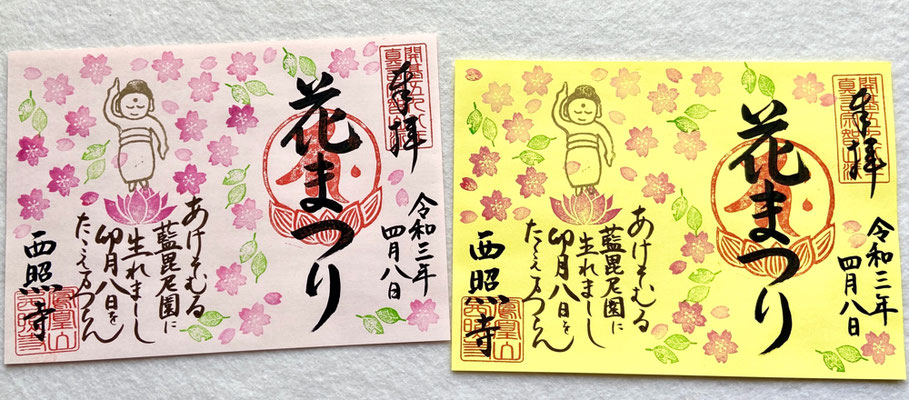 奉拝
令和三年
四月八日
花まつり
あけそむる
藍毘尼園に
生れましし
卯月八日を
たゝえまつらん
西照寺
鳳凰山
奉拝
真言宗智山派
令和三年
四月八日
花まつり
あけそむる
藍毘尼園に
生れましし
卯月八日を
たゝえまつらん
西照寺
鳳凰山